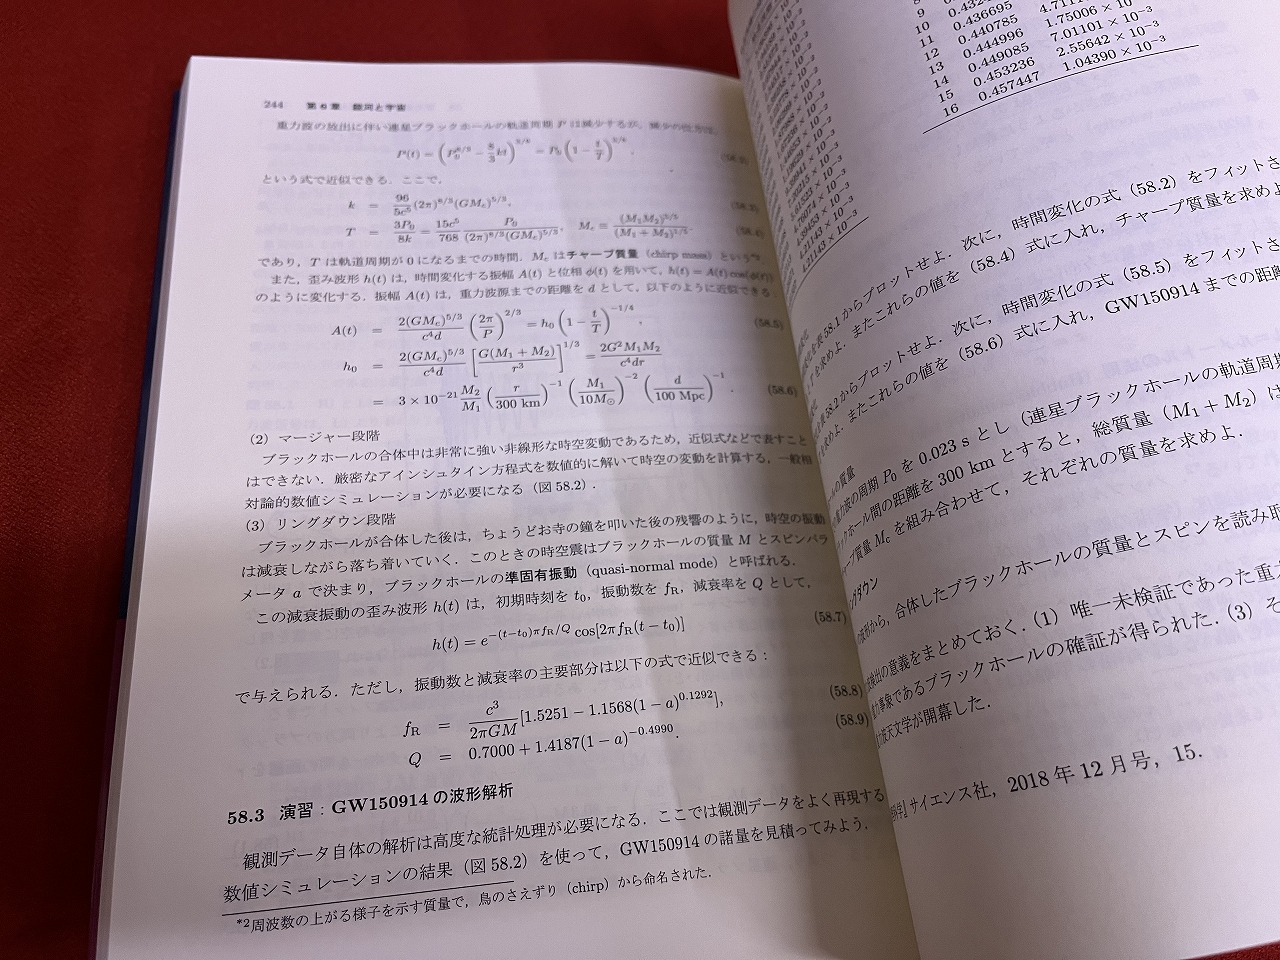 244 第6章 銀河と宇宙
重力波の放出に伴い連星ブラックホールの軌道周期 P は減少するが,
P(t) = (P_0^{8/3} − 8/3 kt)^{3/8} = P_0 (1 − t/T)^{3/8} .
という式で近似できる.ここで,
k = 96/5c^5 (2π)^{8/3}(GM_c)^{5/3},
T = 3P_0/8k = 15c^5/768 P_0/(2π)^{8/3}(GM_c)^{5/3}, M_c = (M_1M_2)^{3/5}/(M_1 + M_2)^{1/5}. (58.4)
であり,T は軌道周期が 0 になるまでの時間.M_c はチャープ質量(chirp mass)という*2.
また,歪み波形 h(t) は,時間変化する振幅 A(t) と位相 φ(t) を用いて,h(t) = A(t) cos(φ(t))
のように変化する.振幅 A(t) は,重力波源までの距離を d として,以下のように近似できる.
A(t) = 2(GM_c)^{5/3}/c^4d (2π/P)^{2/3} = h_0 (1 − t/T)^{−1/4} , (58.5)
h_0 = 2(GM_c)^{5/3}/c^4d [G(M_1 + M_2)/r^3]^{1/3} = 2G^2M_1M_2/c^4dr
= 3 × 10^{−21} M_2/M_1 (r/300 km)^{−1} (M_1/10M_⊙)^{−2} (d/100 Mpc)^{−1} . (58.6)
(2) マージャー段階
ブラックホールの合体中は非常に強い非線形な時空変動であるため,近似式などで表すこと
はできない.厳密なアインシュタイン方程式を数値的に解いて時空の変動を計算する,一般相
対論的数値シミュレーションが必要になる(図58.2).
(3) リングダウン段階
ブラックホールが合体した後は,ちょうどお寺の鐘を叩いた後の残響のように,時空の振動
は減衰しながら落ち着いていく.このときの時空震はブラックホールの質量 M とスピンパラ
メータ a で決まり,ブラックホールの準固有振動(quasi-normal mode)と呼ばれる.
この減衰振動の歪み波形 h(t) は,初期時刻を t_0,振動数を f_R,減衰率を Q として,
h(t) = e^{−(t−t_0)πf_R/Q} cos[2πf_R(t − t_0)] (58.7)
で与えられる.ただし,振動数と減衰率の主要部分は以下の式で近似できる:
f_R = c^3/2πGM [1.5251 − 1.1568(1 − a)^{0.1292}], (58.8)
Q = 0.7000 + 1.4187(1 − a)^{−0.4990}. (58.9)
58.3 演習:GW150914 の波形解析
観測データ自体の解析は高度な統計処理が必要になる.ここでは観測データをよく再現する
数値シミュレーションの結果(図58.2)を使って,GW150914 の諸量を見積ってみよう.
*2 周波数の上がる様子を示す質量で,鳥のさえずり(chirp)から命名された.
9
10 0.436695
11 0.440785 1.75006 × 10^{−3}
12 0.444996 7.01101 × 10^{−3}
13 0.449085 2.55642 × 10^{−3}
14 0.453236 1.04390 × 10^{−3}
15 0.457447
16
次に,時間変化の式(58.2)をフィットさ
表58.1からプロットせよ.
を求めよ.またこれらの値を(58.4)式に入れ,チャープ質量を求めよ
次に,時間変化の式(58.5)をフィットさ
表58.2からプロットせよ.
を求めよ.またこれらの値を(58.6)式に入れ,GW150914 までの距離
の質量
の周期 P_0 を 0.023 s とし(連星ブラックホールの軌道周期
ホール間の距離を 300 km とすると,総質量(M_1 + M_2)は
質量 M_c を組み合わせて,それぞれの質量を求めよ.
ダウン
波形から,合体したブラックホールの質量とスピンを読み
検出の意義をまとめておく.(1) 唯一未検証であった重力
事象であるブラックホールの確証が得られた.(3) そ
天文学が開幕した.
サイエンス社,2018 年 12 月号,15.